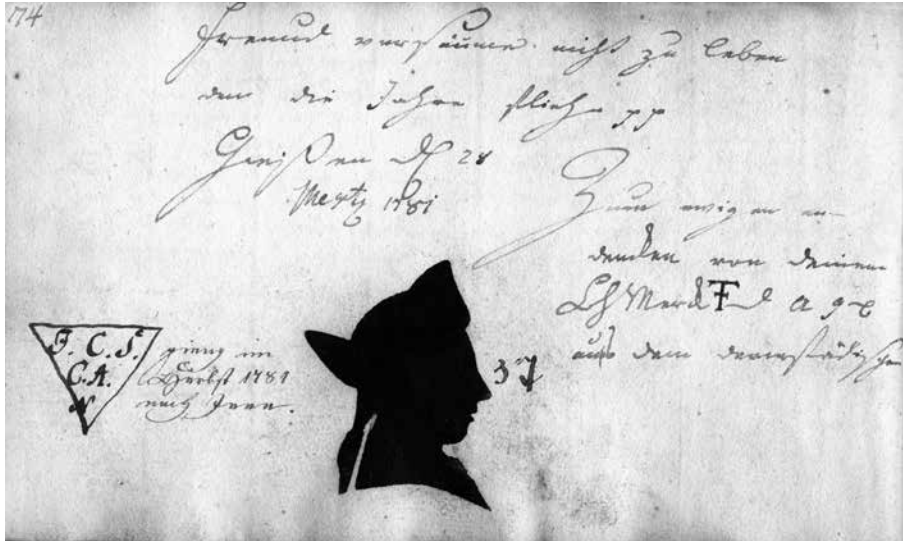 174
Freund versäume nicht zu leben
den die Jahre flieh pp
Gießen d 28
Mertz 1781
Zum ewigen an-
dencken von deinem
Merck
aus dem darmstädischen
J. C. S.
C. A.
N
gieng im
Herbst 1781
nach Jena.